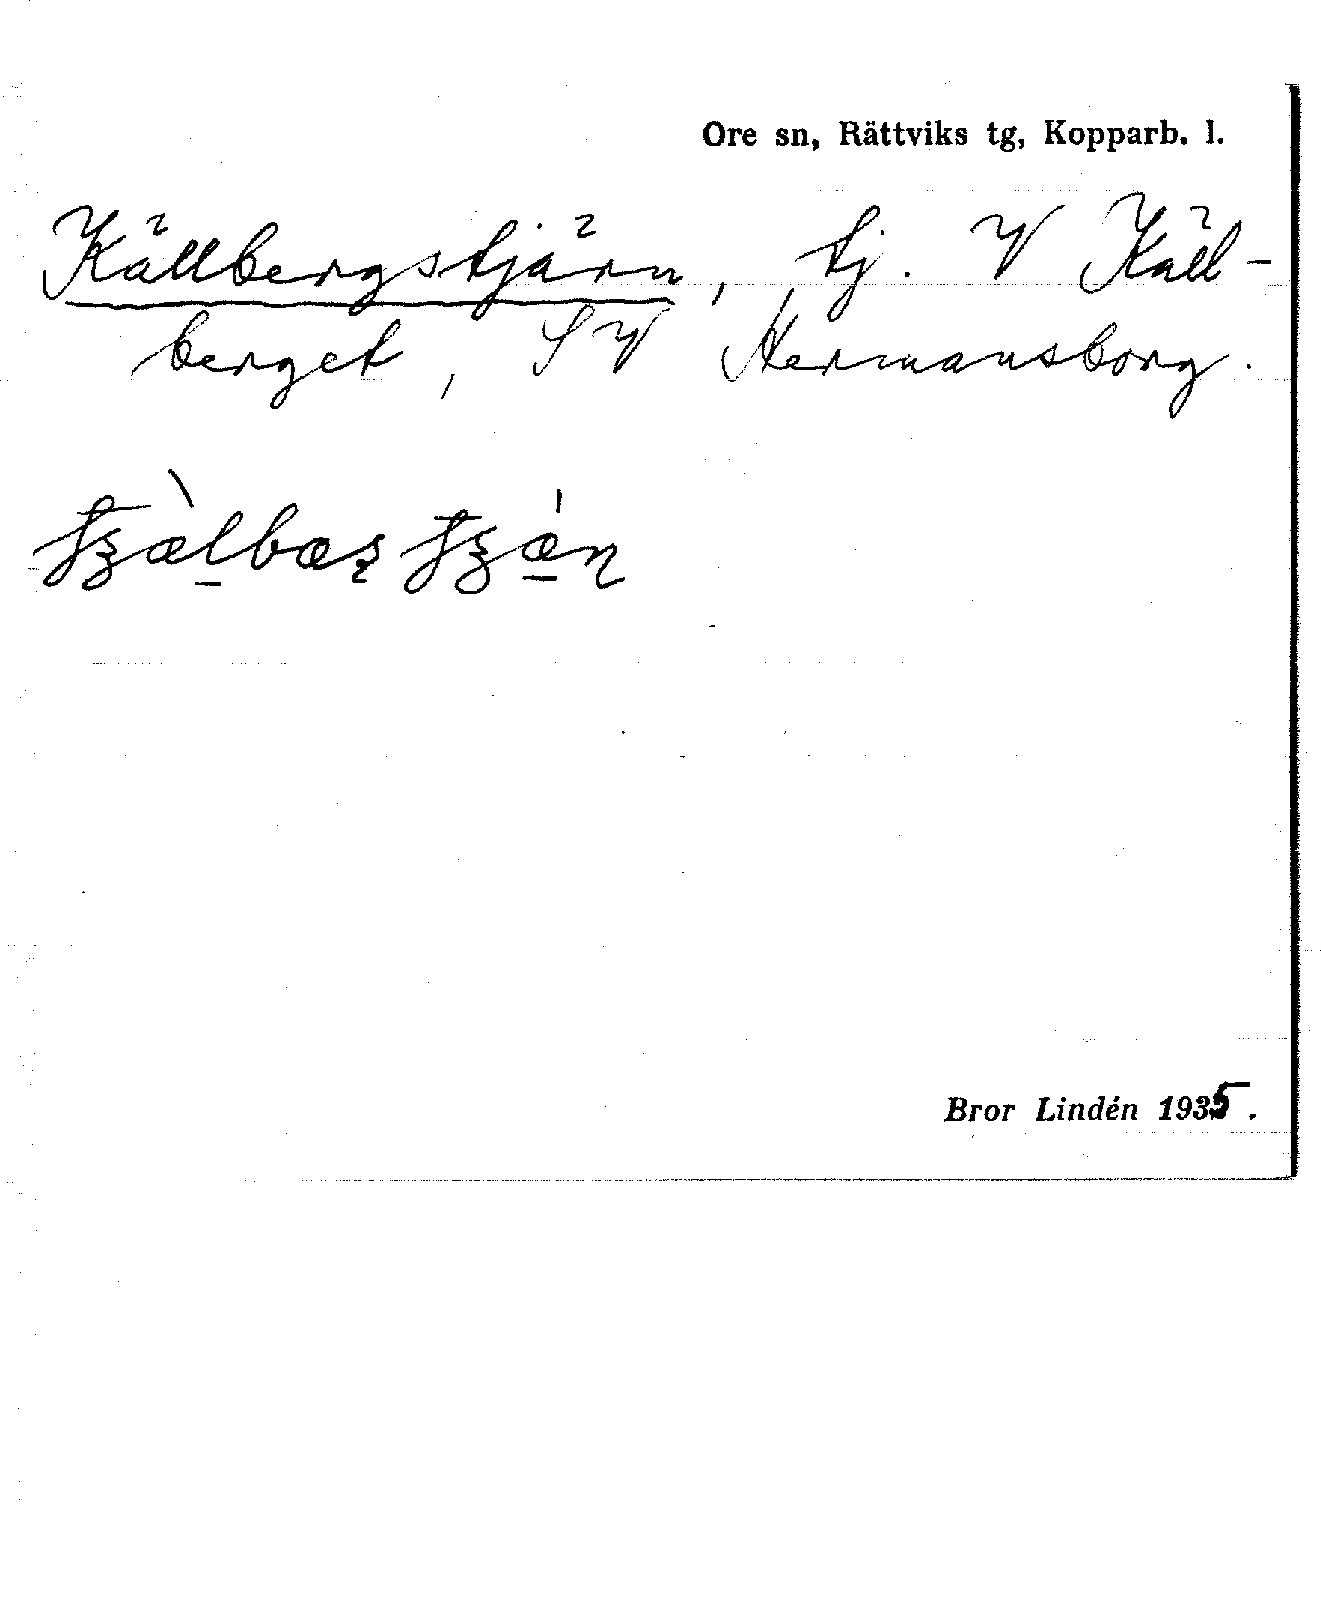 Ore sn, Rättviks tg, Kopparb. l.
Källbergstjärn, tj. V Käll-
berget, SV Hermansborg.
Bror Lindén 1935.